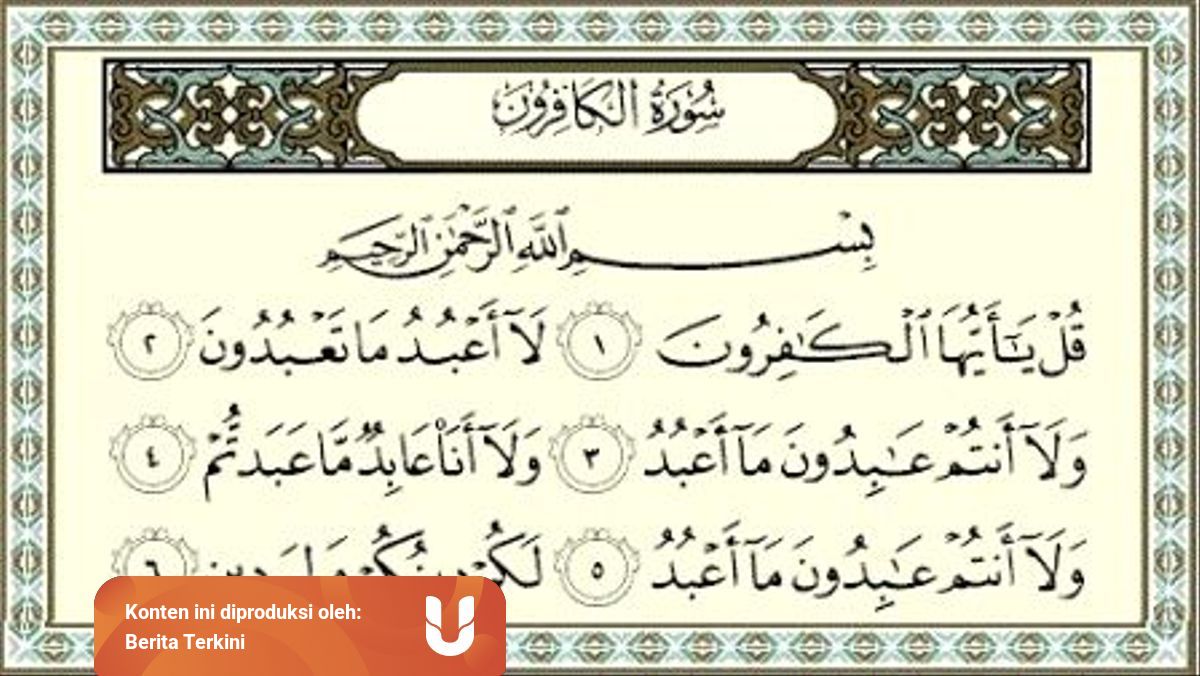 سُورَةُ الكَافِرُونَ
بِسْمِ ٱللَّهِ ٱلرَّحْمَٰنِ ٱلرَّحِيمِ
قُلْ يَٰٓأَيُّهَا ٱلْكَٰفِرُونَ ١ لَآ أَعْبُدُ مَا تَعْبُدُونَ ٢
وَلَآ أَنتُمْ عَٰبِدُونَ مَآ أَعْبُدُ ٣ وَلَآ أَنَا۠ عَابِدٌ مَّا عَبَدتُّمْ ٤
وَلَآ أَنتُمْ عَٰبِدُونَ مَآ أَعْبُدُ ٥ لَكُمْ دِينُكُمْ وَلِىَ دِينِ ٦
Konten ini diproduksi oleh:
Berita Terkini